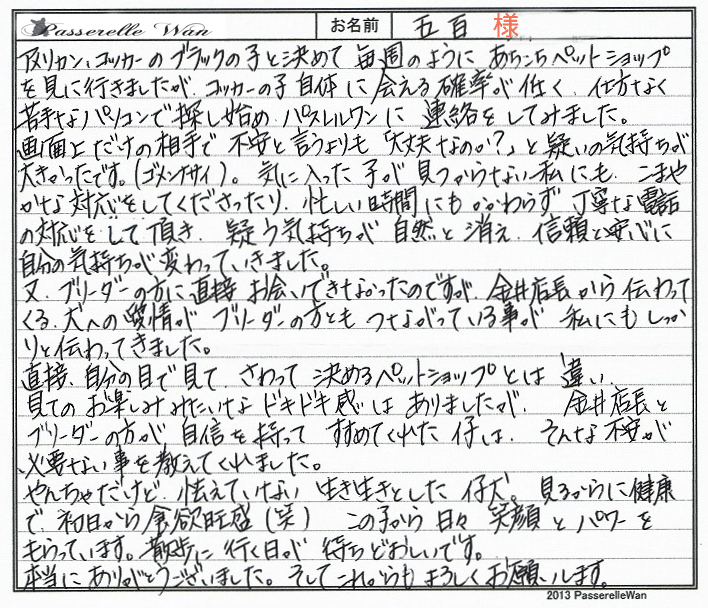 Passerelle Wan お名前 五百 様
アメリカン、コッカーのブラックの子と決めて毎週のようにあちこちペットショップ
を見に行きましたが、コッカーの子自体に会える確率が低く、仕方なく
苦手なパソコンで探し始め、パスレルワンに連絡をしてみました。
画面上だけの相手で不安と言うよりも「大丈夫なのか?」と疑いの気持ちが
大きかったです。(ゴメンナサイ)。気に入った子が見つからない私にも、こまや
かな対応をしてくださったり、忙しい時間にもかかわらず丁寧な電話
の対応をして頂き、疑う気持ちが自然と消え、信頼と安心に
自分の気持ちが変わっていきました。
又、ブリーダーの方に直接お会いできなかったのですが、金井店長から伝わって
くる、犬への愛情がブリーダーの方ともつながっている事が私にもしっか
りと伝わってきました。
直接、自分の目で見て、さわって決めるペットショップとは違い、
見てのお楽しみみたいなドキドキ感はありましたが、金井店長と
ブリーダーの方が自信を持ってすすめてくれた仔は、そんな不安が
必要ない事を教えてくれました。
やんちゃだけど、怯えていない生き生きとした仔犬。見るからに健康
で、初日から食欲旺盛(笑) この子から日々笑顔とパワーを
もらっています。散歩に行く日が待ちどおしいです。
本当にありがとうございました。そしてこれからもよろしくお願いします。
2013 PasserelleWan